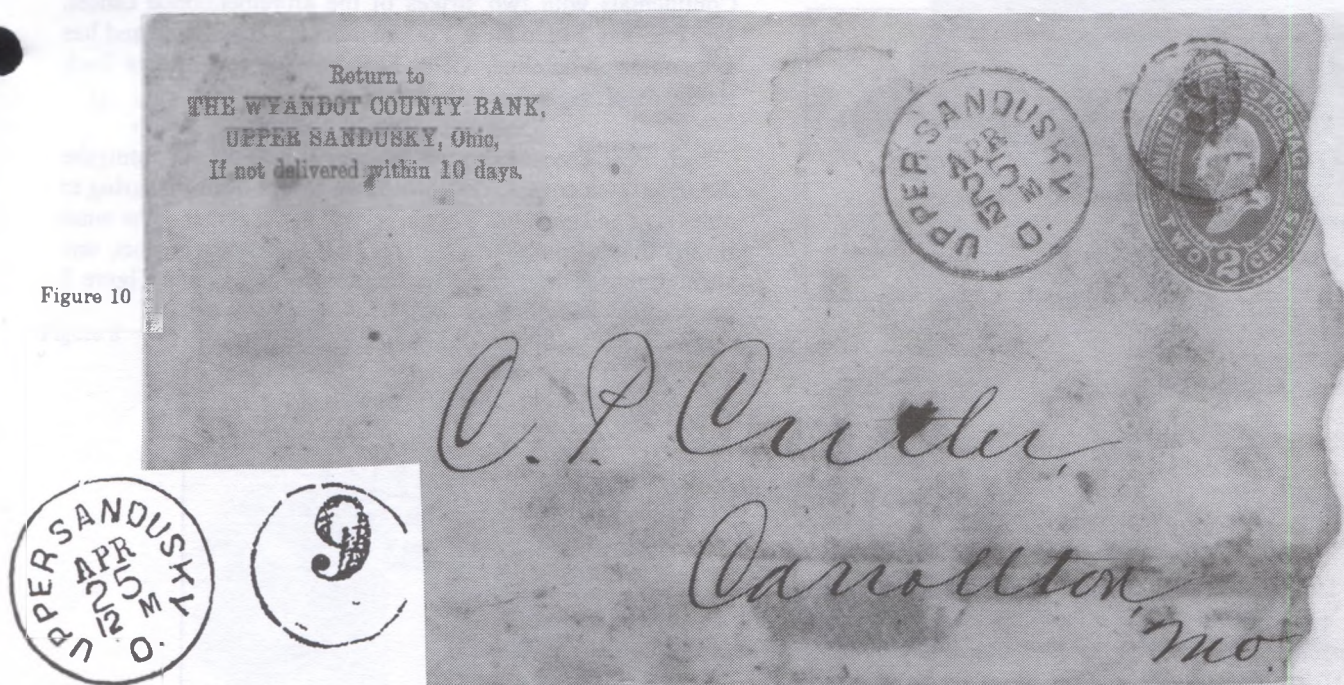 Return to
THE WYANDOT COUNTY BANK,
UPPER SANDUSKY, Ohio,
If not delivered within 10 days.
UPPER SANDUSKY O.
APR
25
12 M
9
UNITED STATES POSTAGE
TWO 2 CENTS
Figure 10
C. P. Cutler,
Carrollton,
Mo.
UPPER SANDUSKY O.
APR
25
12 M
9